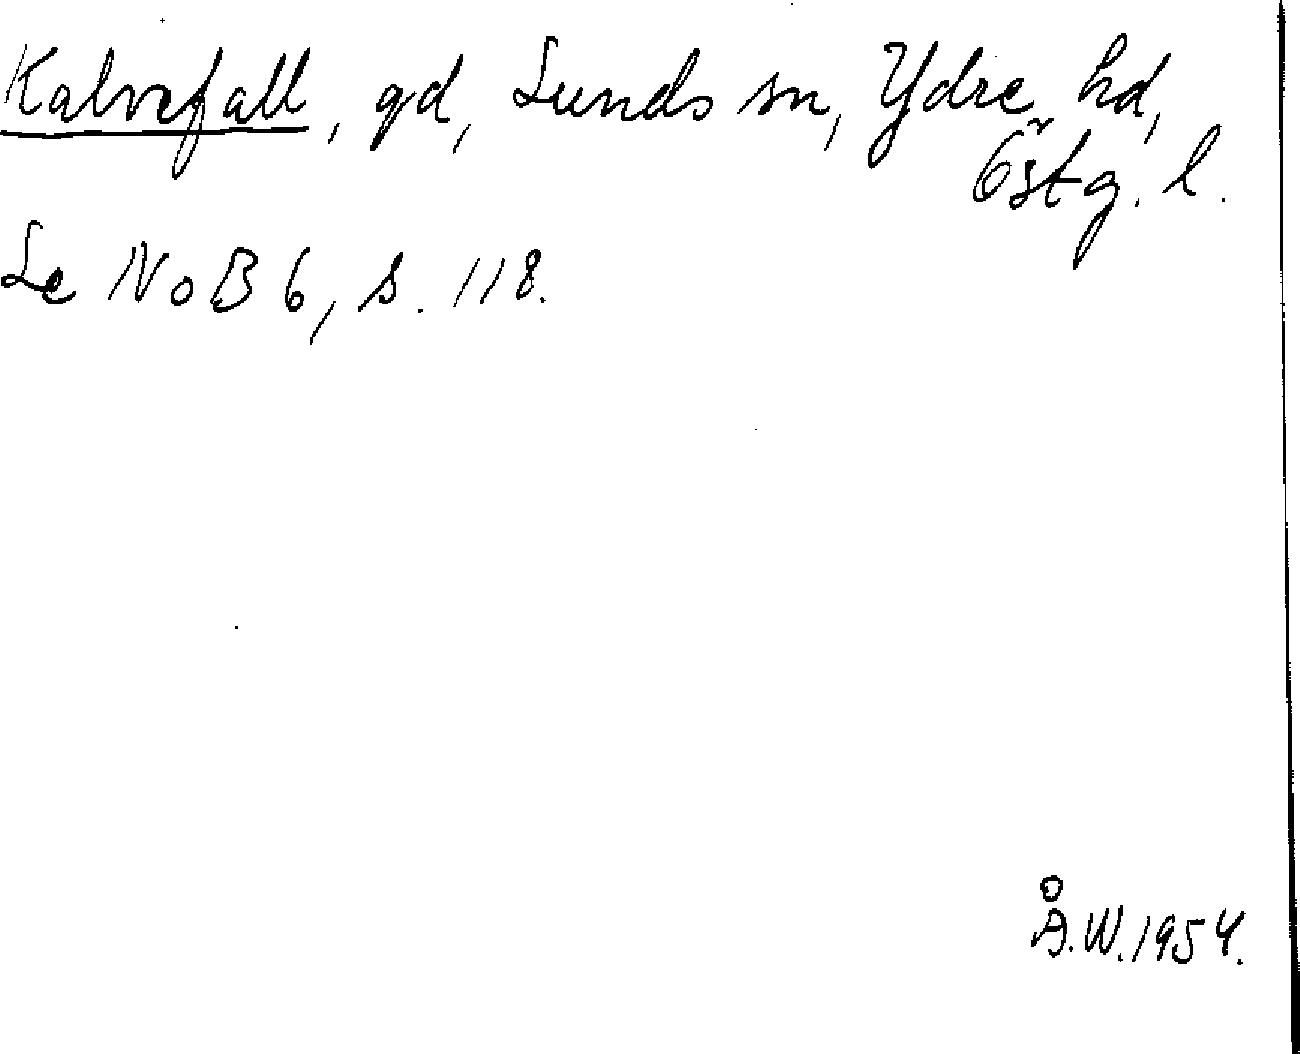 Kalvefall, gd, Sunds sn, Ydre hd,
Östg. l.
Se NoB 6, s. 118.
Å.W. 1954.